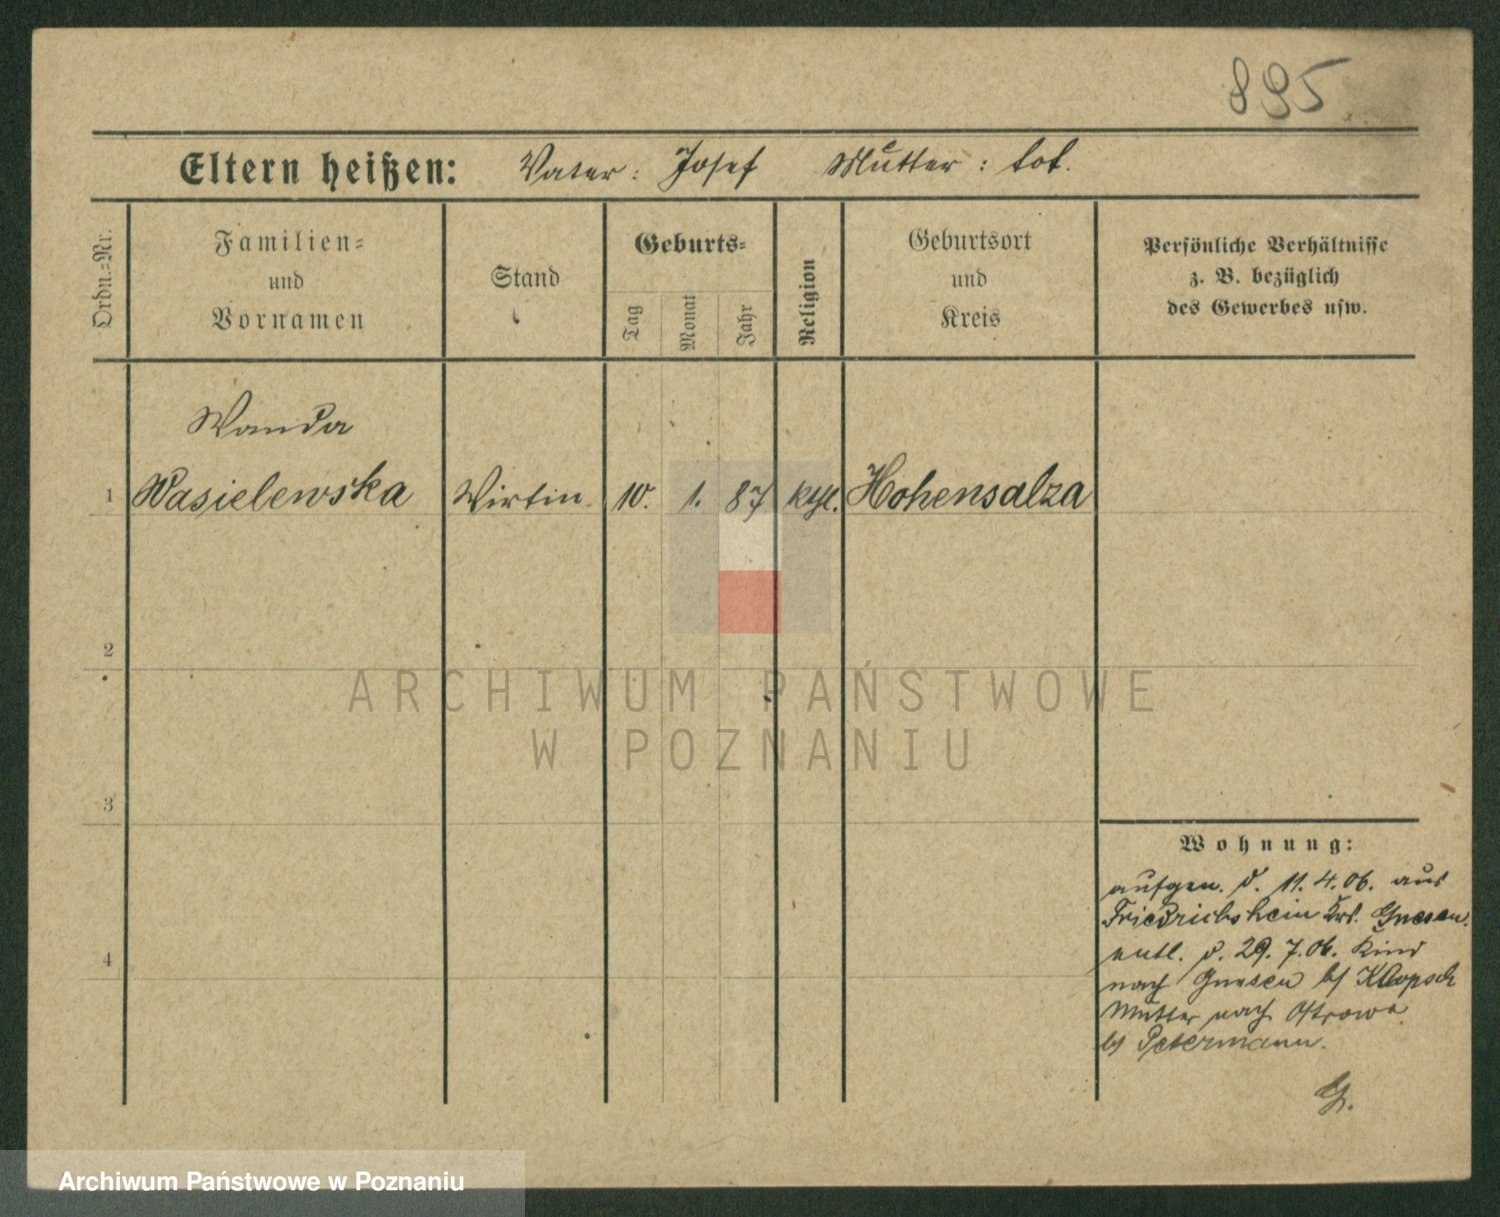 895
Eltern heißen: Vater: Josef Mutter: tot.
Ordn.=Nr.
Familien=
und
Vornamen
Stand
Geburts=
Tag
Monat
Jahr
Religion
Geburtsort
und
Kreis
Persönliche Verhältnisse
z. B. bezüglich
des Gewerbes usw.
Wanda
1 Wasielewska Wirtin. 10. 1. 87 kth. Hohensalza
2
3
4
ARCHIWUM PAŃSTWOWE
W POZNANIU
Wohnung:
aufgen. d. 11.4.06. aus
Friedrichshein Krs. Gnesen.
entl. d. 29.7.06. Kind
nach Gnesen b/ Klopsch
Mutter nach Ostrowo
b/ Petermann.
G.
Archiwum Państwowe w Poznaniu